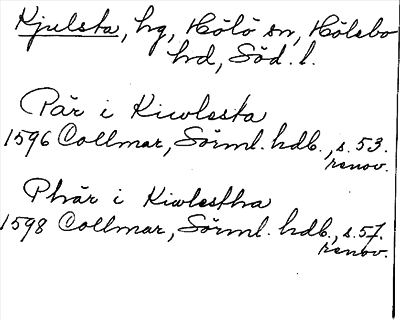 Kjulsta, hg, Hölö sn, Hölebo
hd, Söd. l.
Pär i Kiwlesta
1596 Collmar, Sörml. hdb., s. 53.
renov.
Phär i Kiwlestha
1598 Collmar, Sörml. hdb., s. 57.
renov.